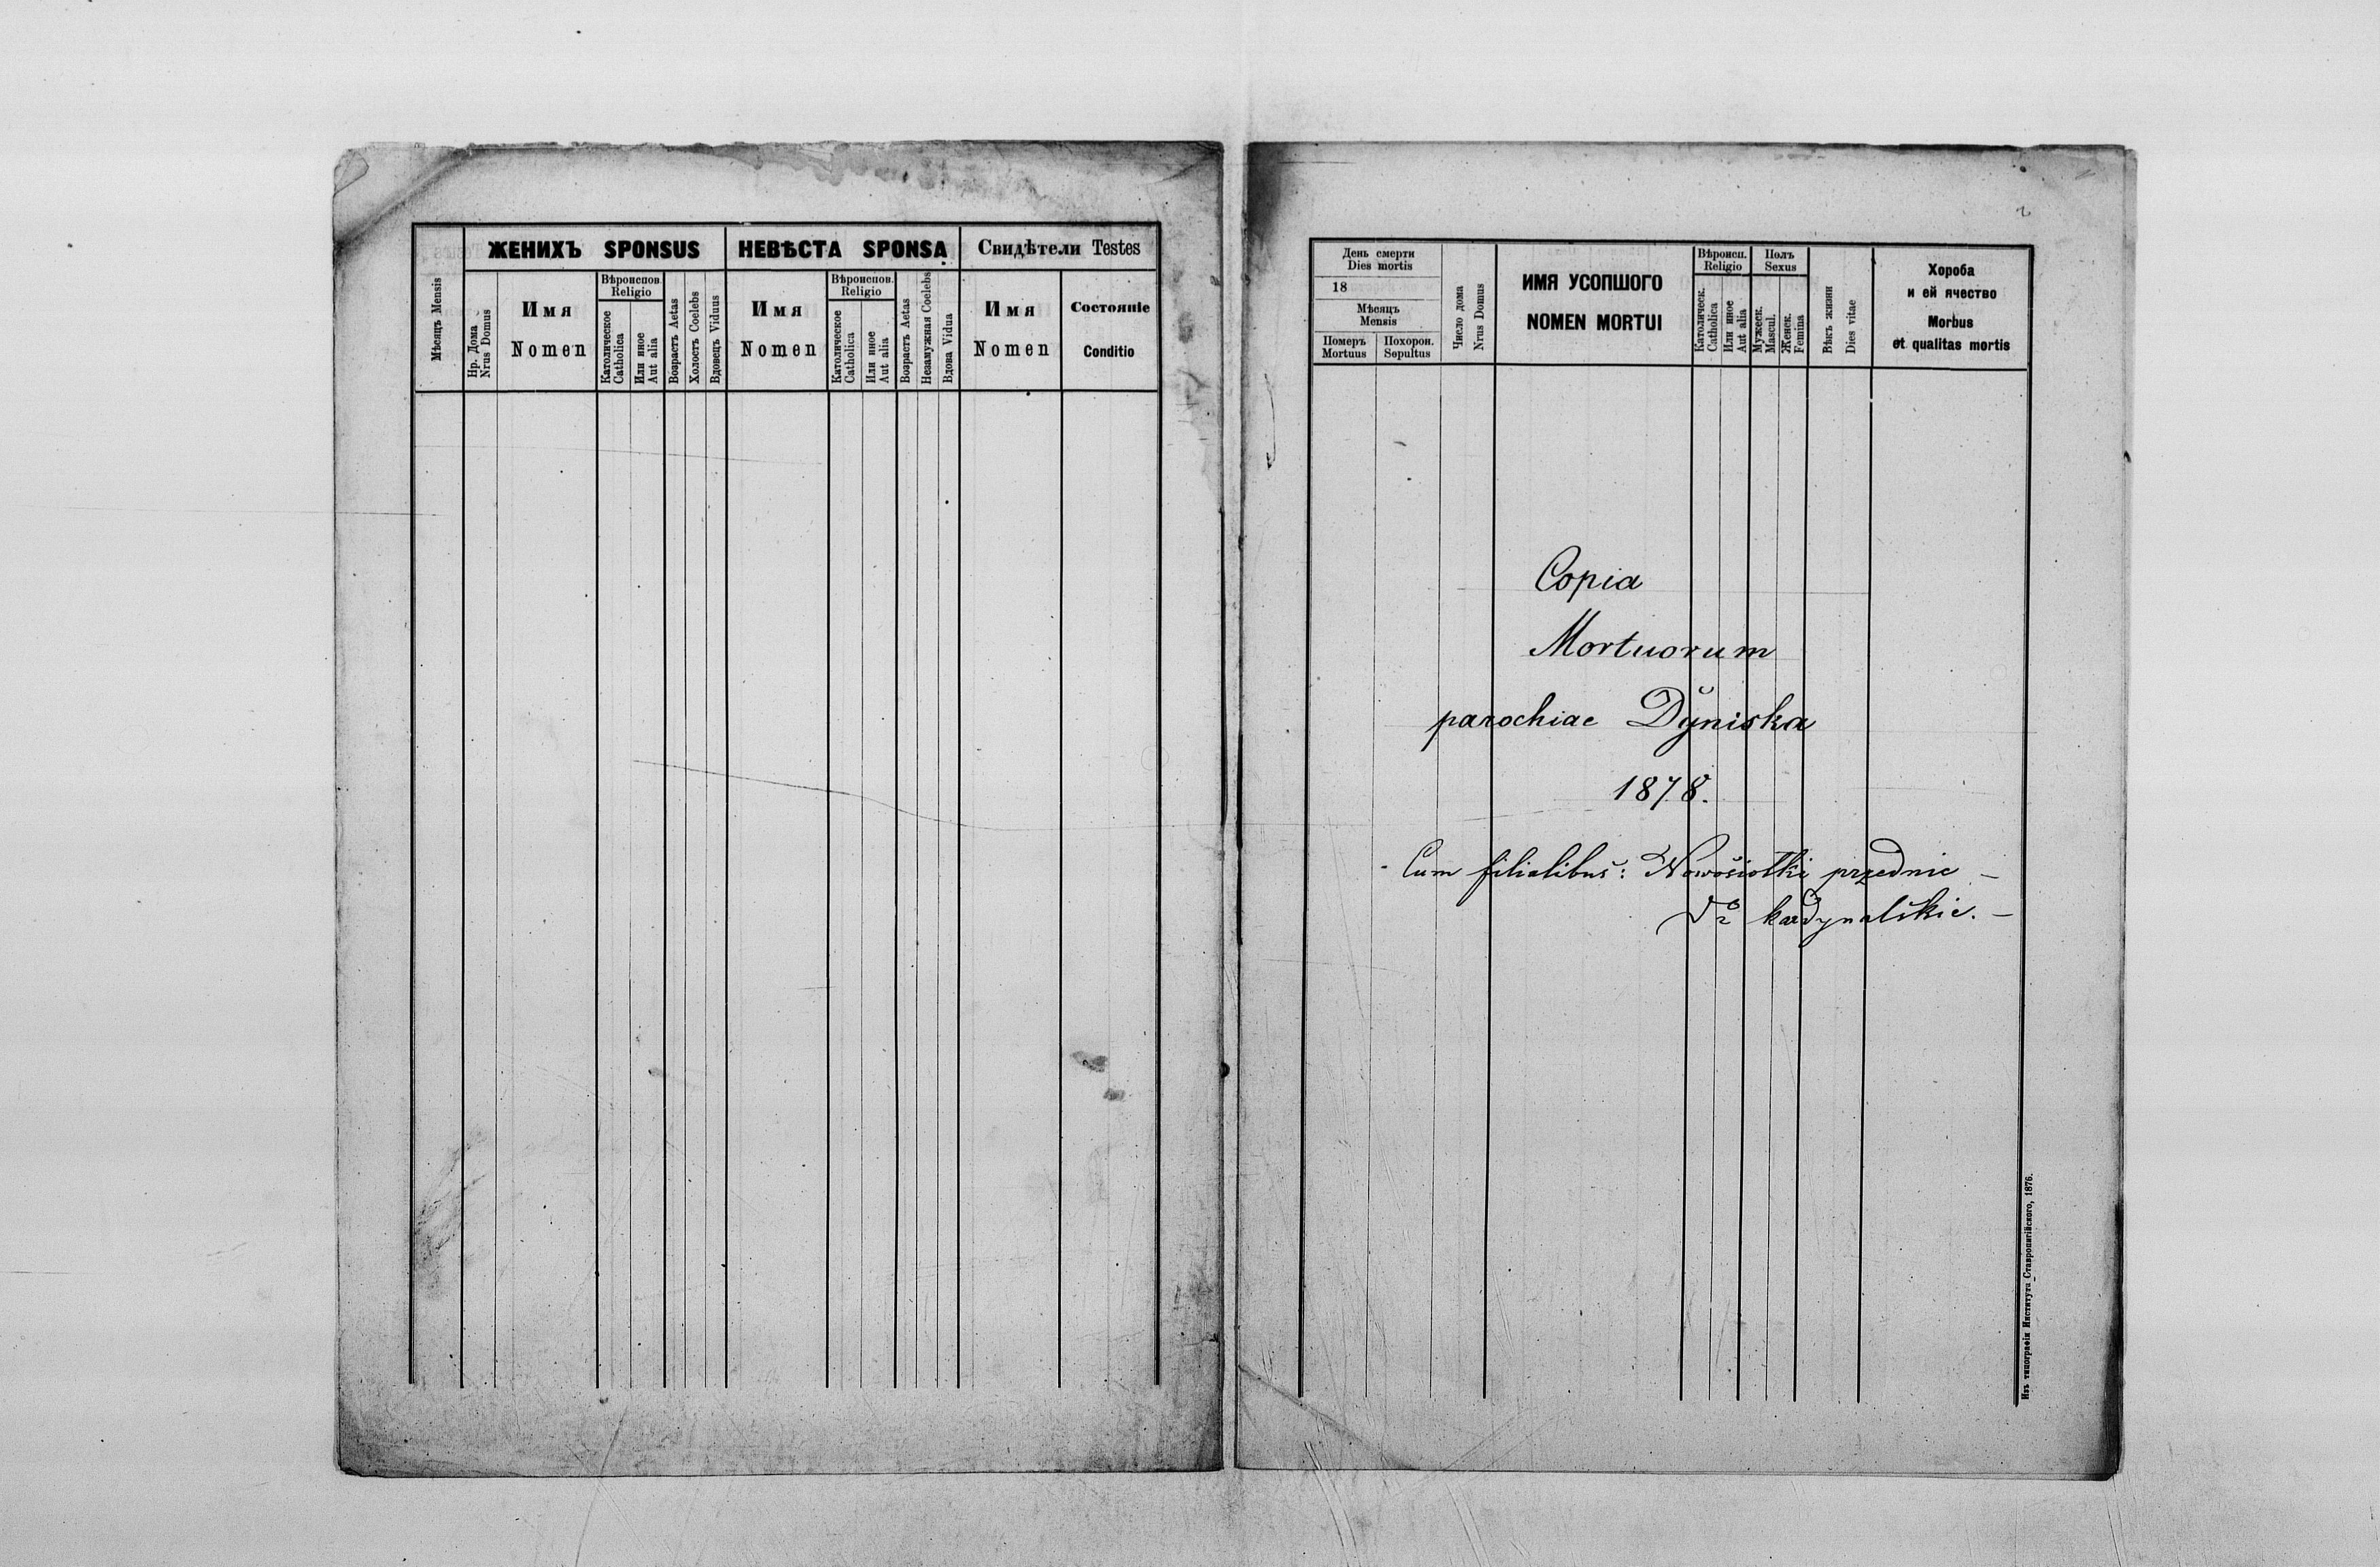 ЖЕНИХЪ SPONSUS
НЕВѢСТА SPONSA
Свидѣтели Testes
Мѣсяцъ Mensis
Нр. Дома
Nrus Domus
Имя
Nomen
Вѣроиспов.
Religio
Католическое
Catholica
Или иное
Aut alia
Возрастъ Aetas
Холостъ Coelebs
Вдовецъ Viduus
Имя
Nomen
Вѣроиспов.
Religio
Католическое
Catholica
Или иное
Aut alia
Возрастъ Aetas
Незамужная Coelebs
Вдова Vidua
Имя
Nomen
Состояніе
Conditio
2
День смерти
Dies mortis
18
Мѣсяцъ
Mensis
Померъ
Mortuus
Похорон.
Sepultus
Число дома
Nrus Domus
ИМЯ УСОПШОГО
NOMEN MORTUI
Вѣроисп.
Religio
Католическ.
Catholica
Или иное
Aut alia
Полъ
Sexus
Мужеск.
Mascul.
Женск.
Femina
Вѣкъ жизни
Dies vitae
Хороба
и ей ячество
Morbus
et qualitas mortis
Copia
Mortuorum
parochiae Dyniska
1878.
Cum filialibus: Nowosiołki przednie –
kardynalskie. –
Изъ типографіи Института Ставропигійского, 1876.